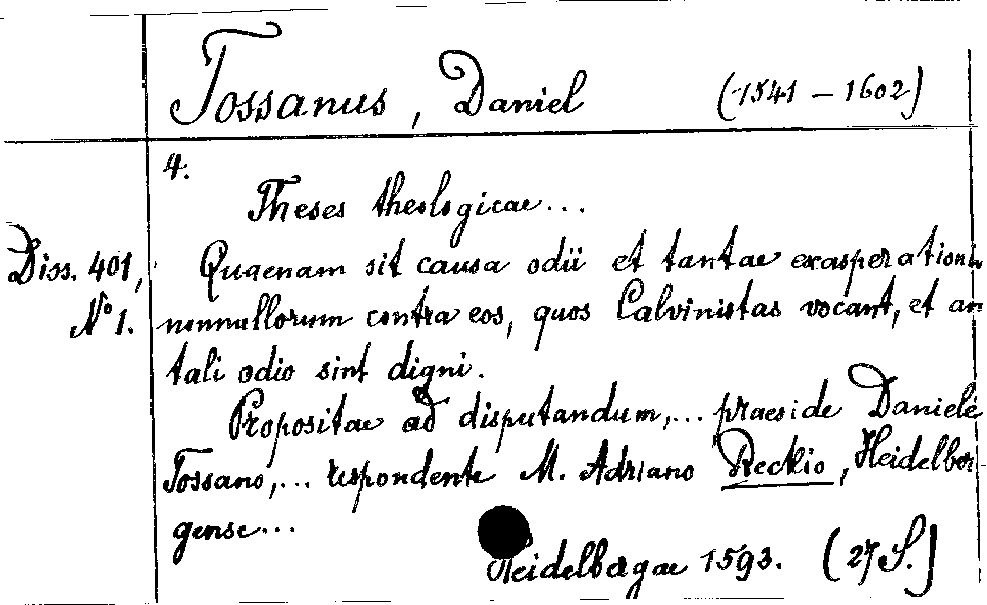 Tossanus, Daniel (1541 – 1602)
4.
Theses theologicae...
Diss. 401, Quaenam sit causa odii et tantae exasperationis
No 1. nonnullorum contra eos, quos Calvinistas vocant, et an
tali odio sint digni.
Propositae ad disputandum,... praeside Daniele
Tossano,... respondente M. Adriano Reckio, Heidelber
gense...
Heidelbergae 1593. (27 S.)